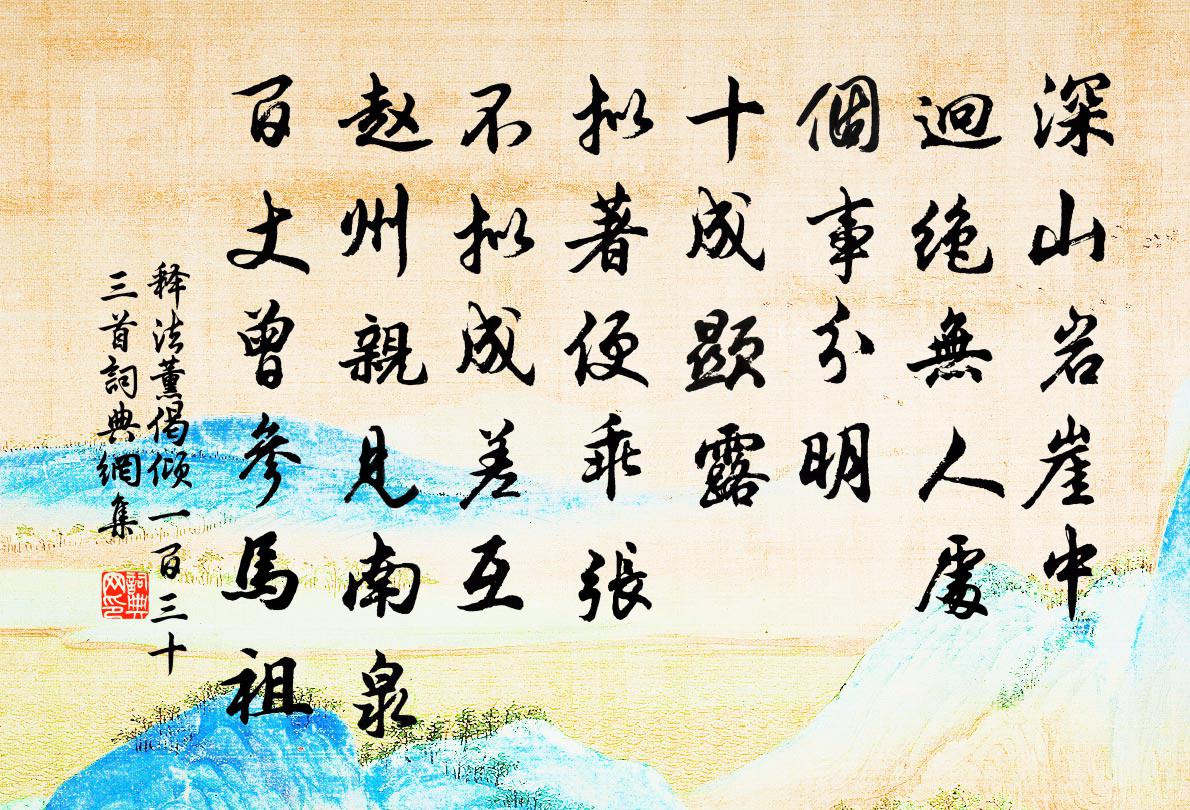 深山岩崖中
迥绝無人處
個事分明
十成顯露
拟著便乖張
不拟成差互
赵州親見南泉
百丈曾參馬祖
释法薰偈倾一百三十
三首詞典網集
詞典
网印